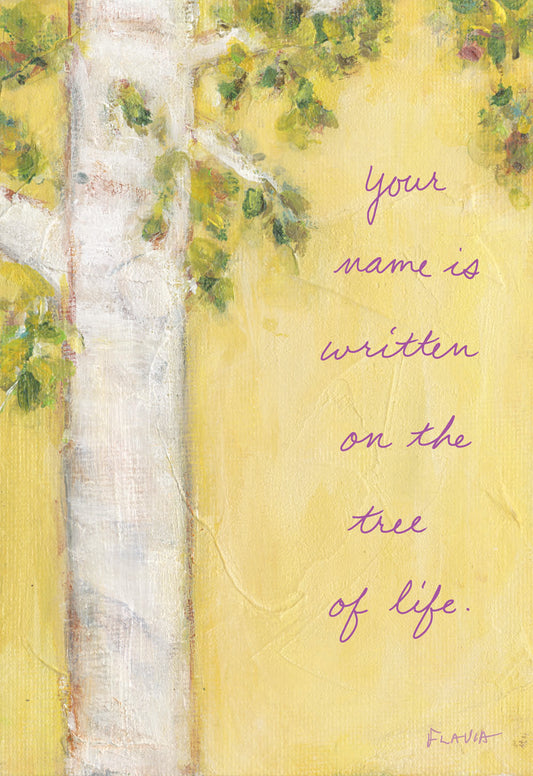 Your
name is
written
on the
tree
of life.
FLAVIA